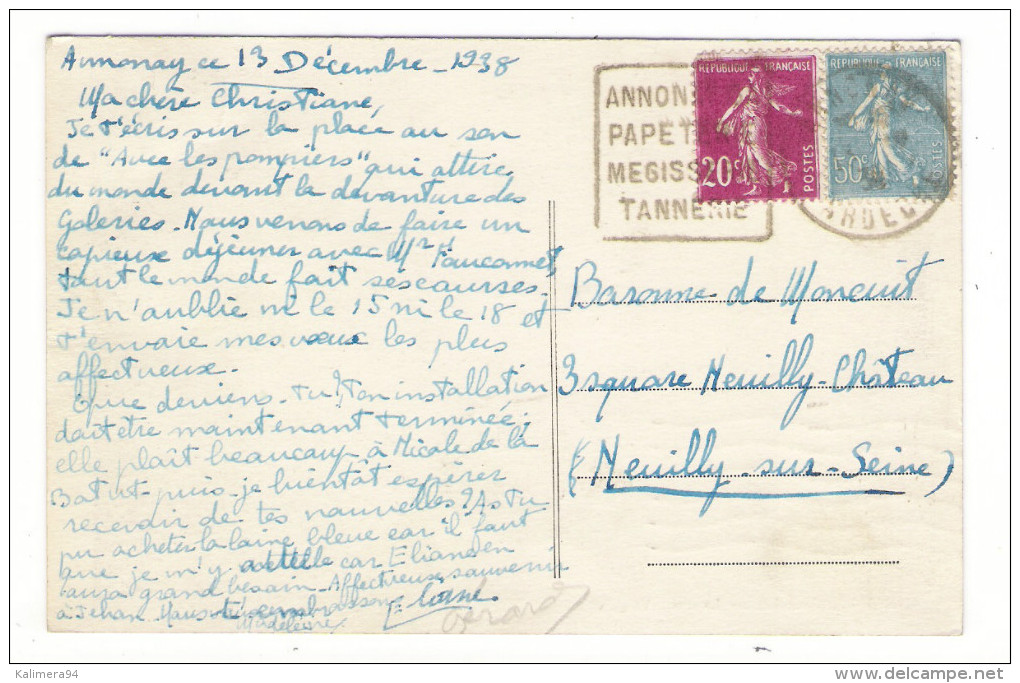 Annonay ce 13 Décembre - 1938
Ma chère Christiane,
Je t'écris sur la place au son
de "Avec les pompiers" qui attire
du monde devant la devanture des
Galeries. Nous venons de faire un
copieux déjeuner avec Mr Fauconnet,
tout le monde fait ses courses.
Je n'oublie ni le 15 ni le 18 et
t'envoie mes vœux les plus
affectueux.
Que deviens-tu? Ton installation
doit être maintenant terminée;
elle plaît beaucoup à Nicole de la
Batut - puis-je bientôt espérer
recevoir de tes nouvelles? As-tu
pu acheter la laine bleue car il faut
que je m'y attelle car Eliane en
aura grand besoin. Affectueux souvenir
à Jehan. Nous t'embrassons
Madeleine
Gérard
ANNON
PAPET
MEGISS
TANNERIE
REPUBLIQUE FRANÇAISE
20c
POSTES
REPUBLIQUE FRANÇAISE
50c
POSTES
ARDEC
Baronne de Moncuit
3 square Neuilly-Château
(Neuilly-sur-Seine)
Kalimera94
delcampe.net